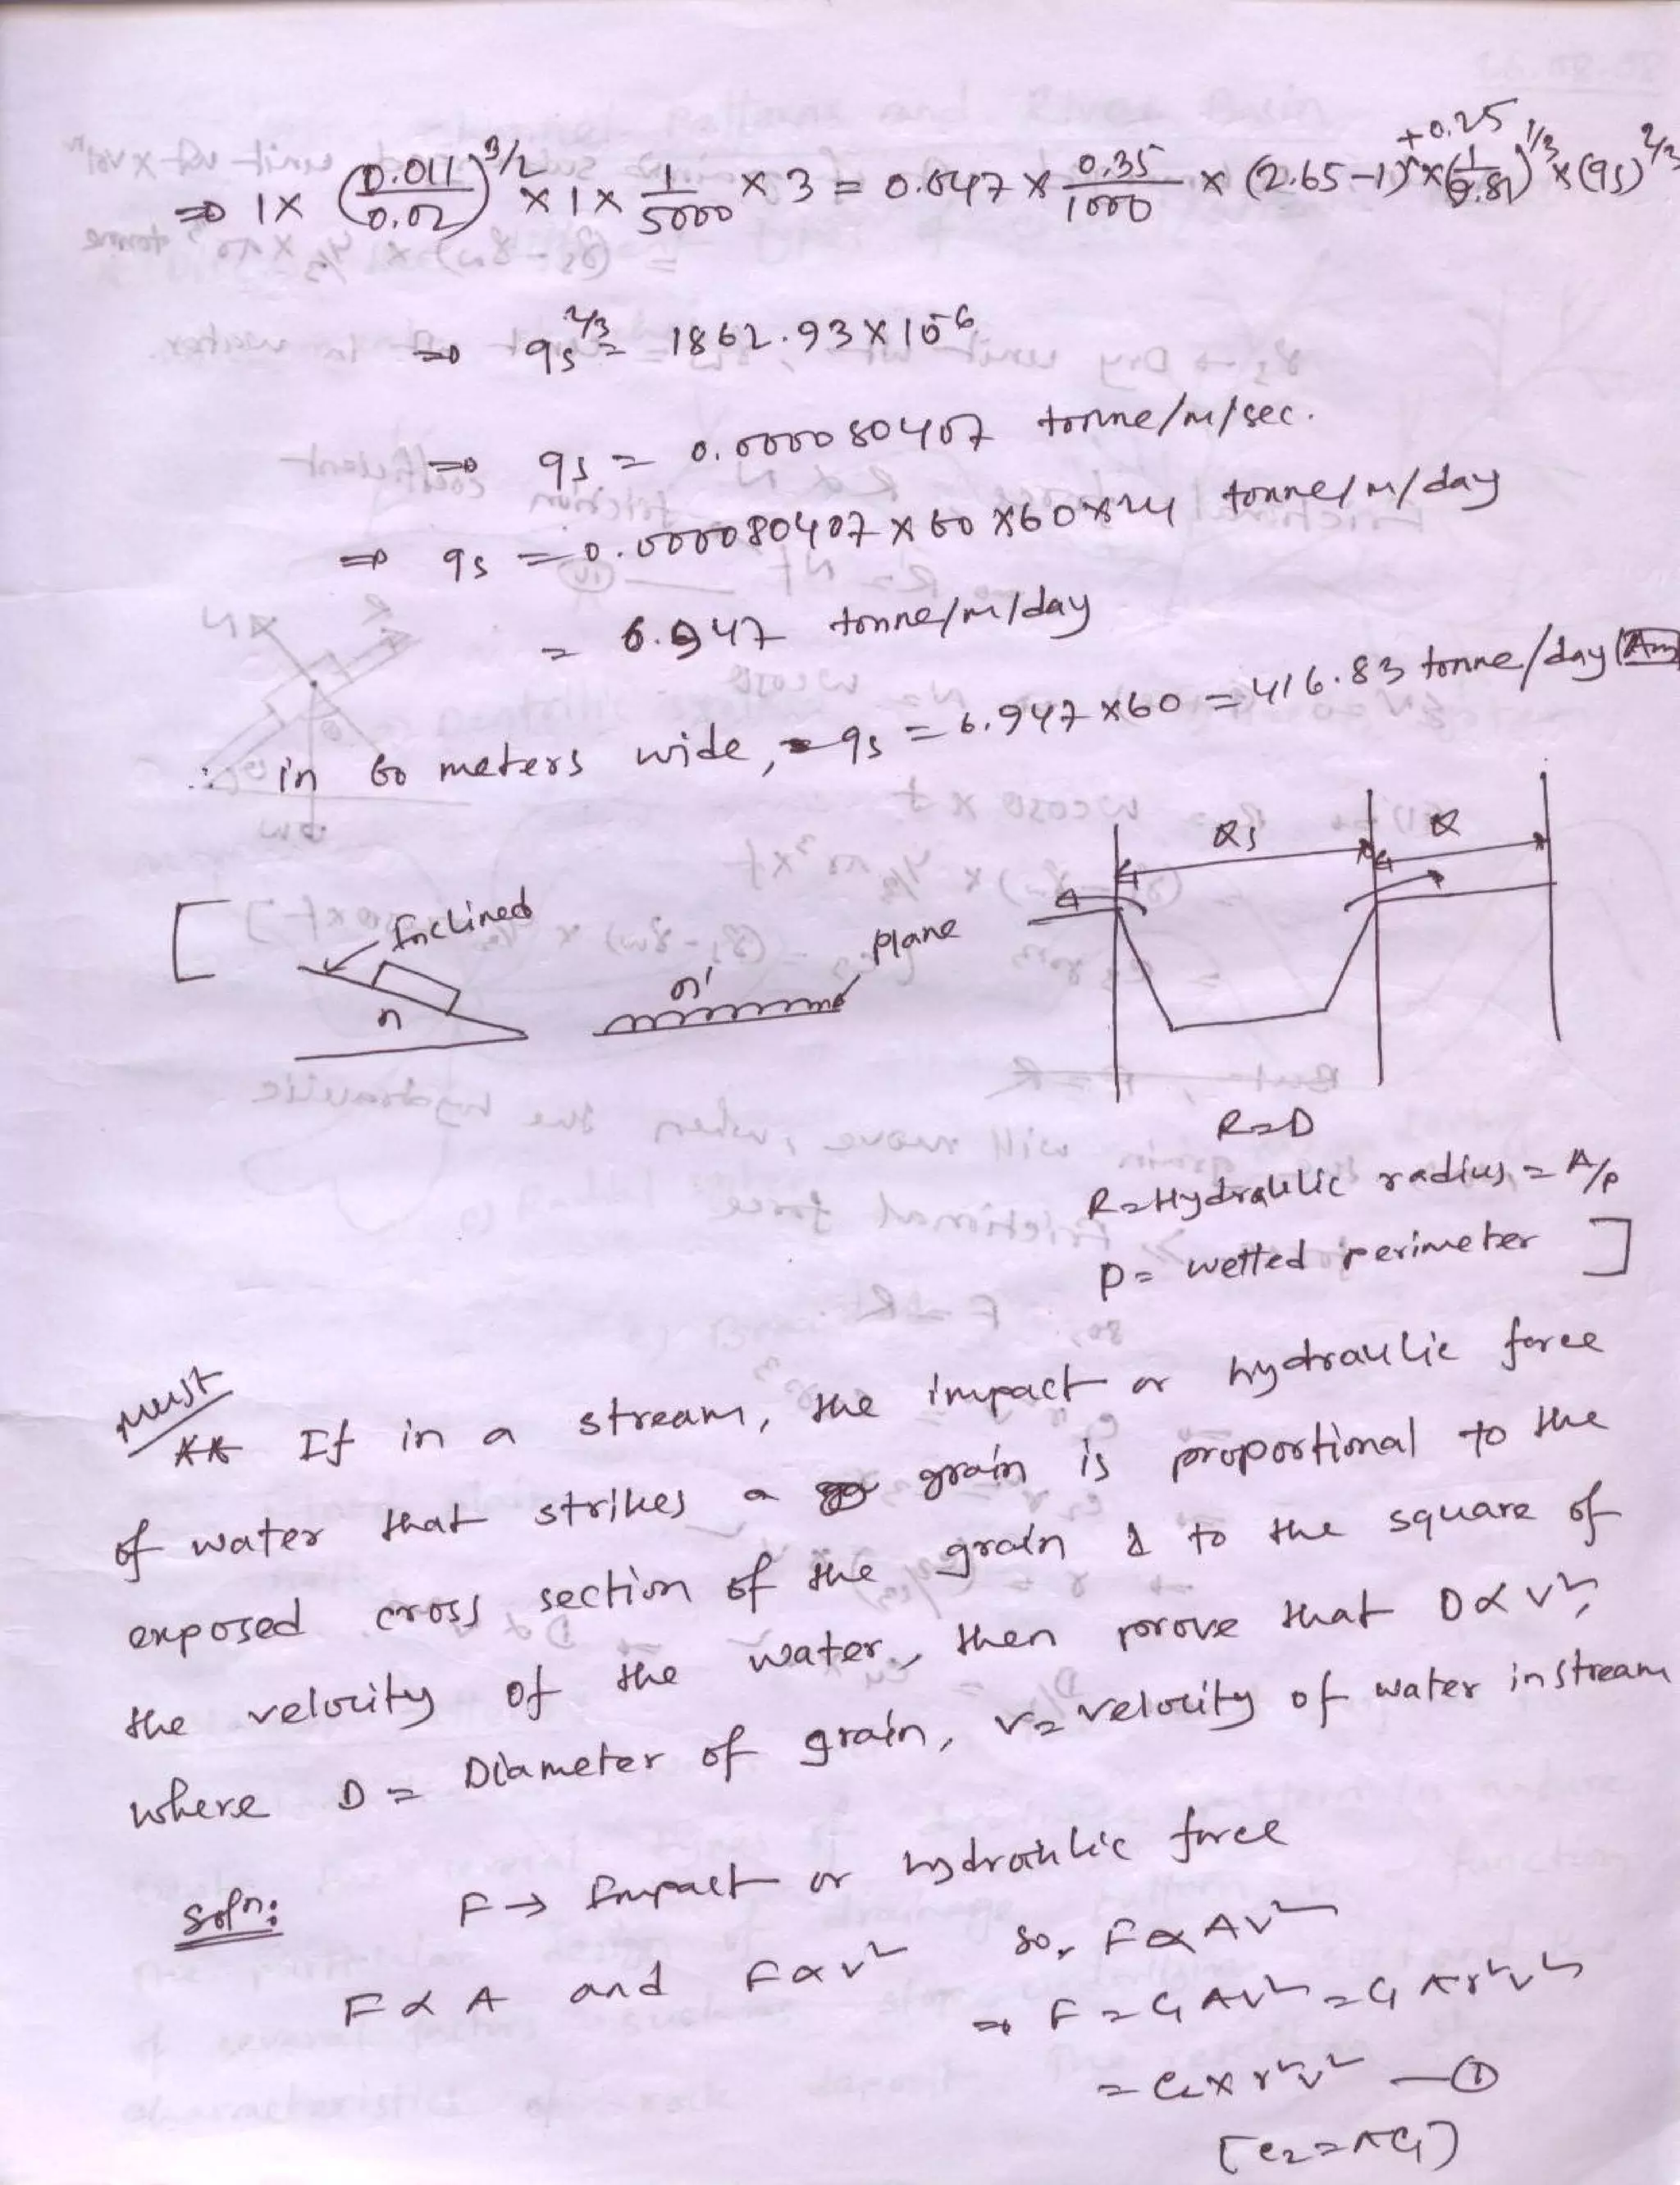 ⇒ 1 × (0.011/0.02)^3/2 × 1 × 1/5000 × 3 = 0.047 × 0.35/1000 × (2.65-1) + 0.25 × (1/9.81)^1/3 × (qs)^2/3
⇒ qs^2/3 = 1862.93 × 10^-6
⇒ qs = 0.000080407 tonne/m/sec.
⇒ qs = 0.000080407 × 60 × 60 × 24 tonne/m/day
= 6.947 tonne/m/day
∴ in 60 meters wide, qs = 6.947 × 60 = 416.83 tonne/day (Ans
[ Inclined
n
n'
plane
Qs
Q
R=D
R=Hydraulic radius = A/p
P = wetted perimeter ]
Must
** If in a stream, the impact or hydraulic force
of water that strikes a grain is proportional to the
exposed cross section of the grain & to the square of
the velocity of the water, then prove that D∝v²,
where D = Diameter of grain, v= velocity of water in stream
Soln:
F → Impact or hydraulic force
F ∝ A and F∝v² so, F∝Av²
⇒ F = C1Av² = C1πr²v²
= C2×r²v² — ①
[C2=πC1)